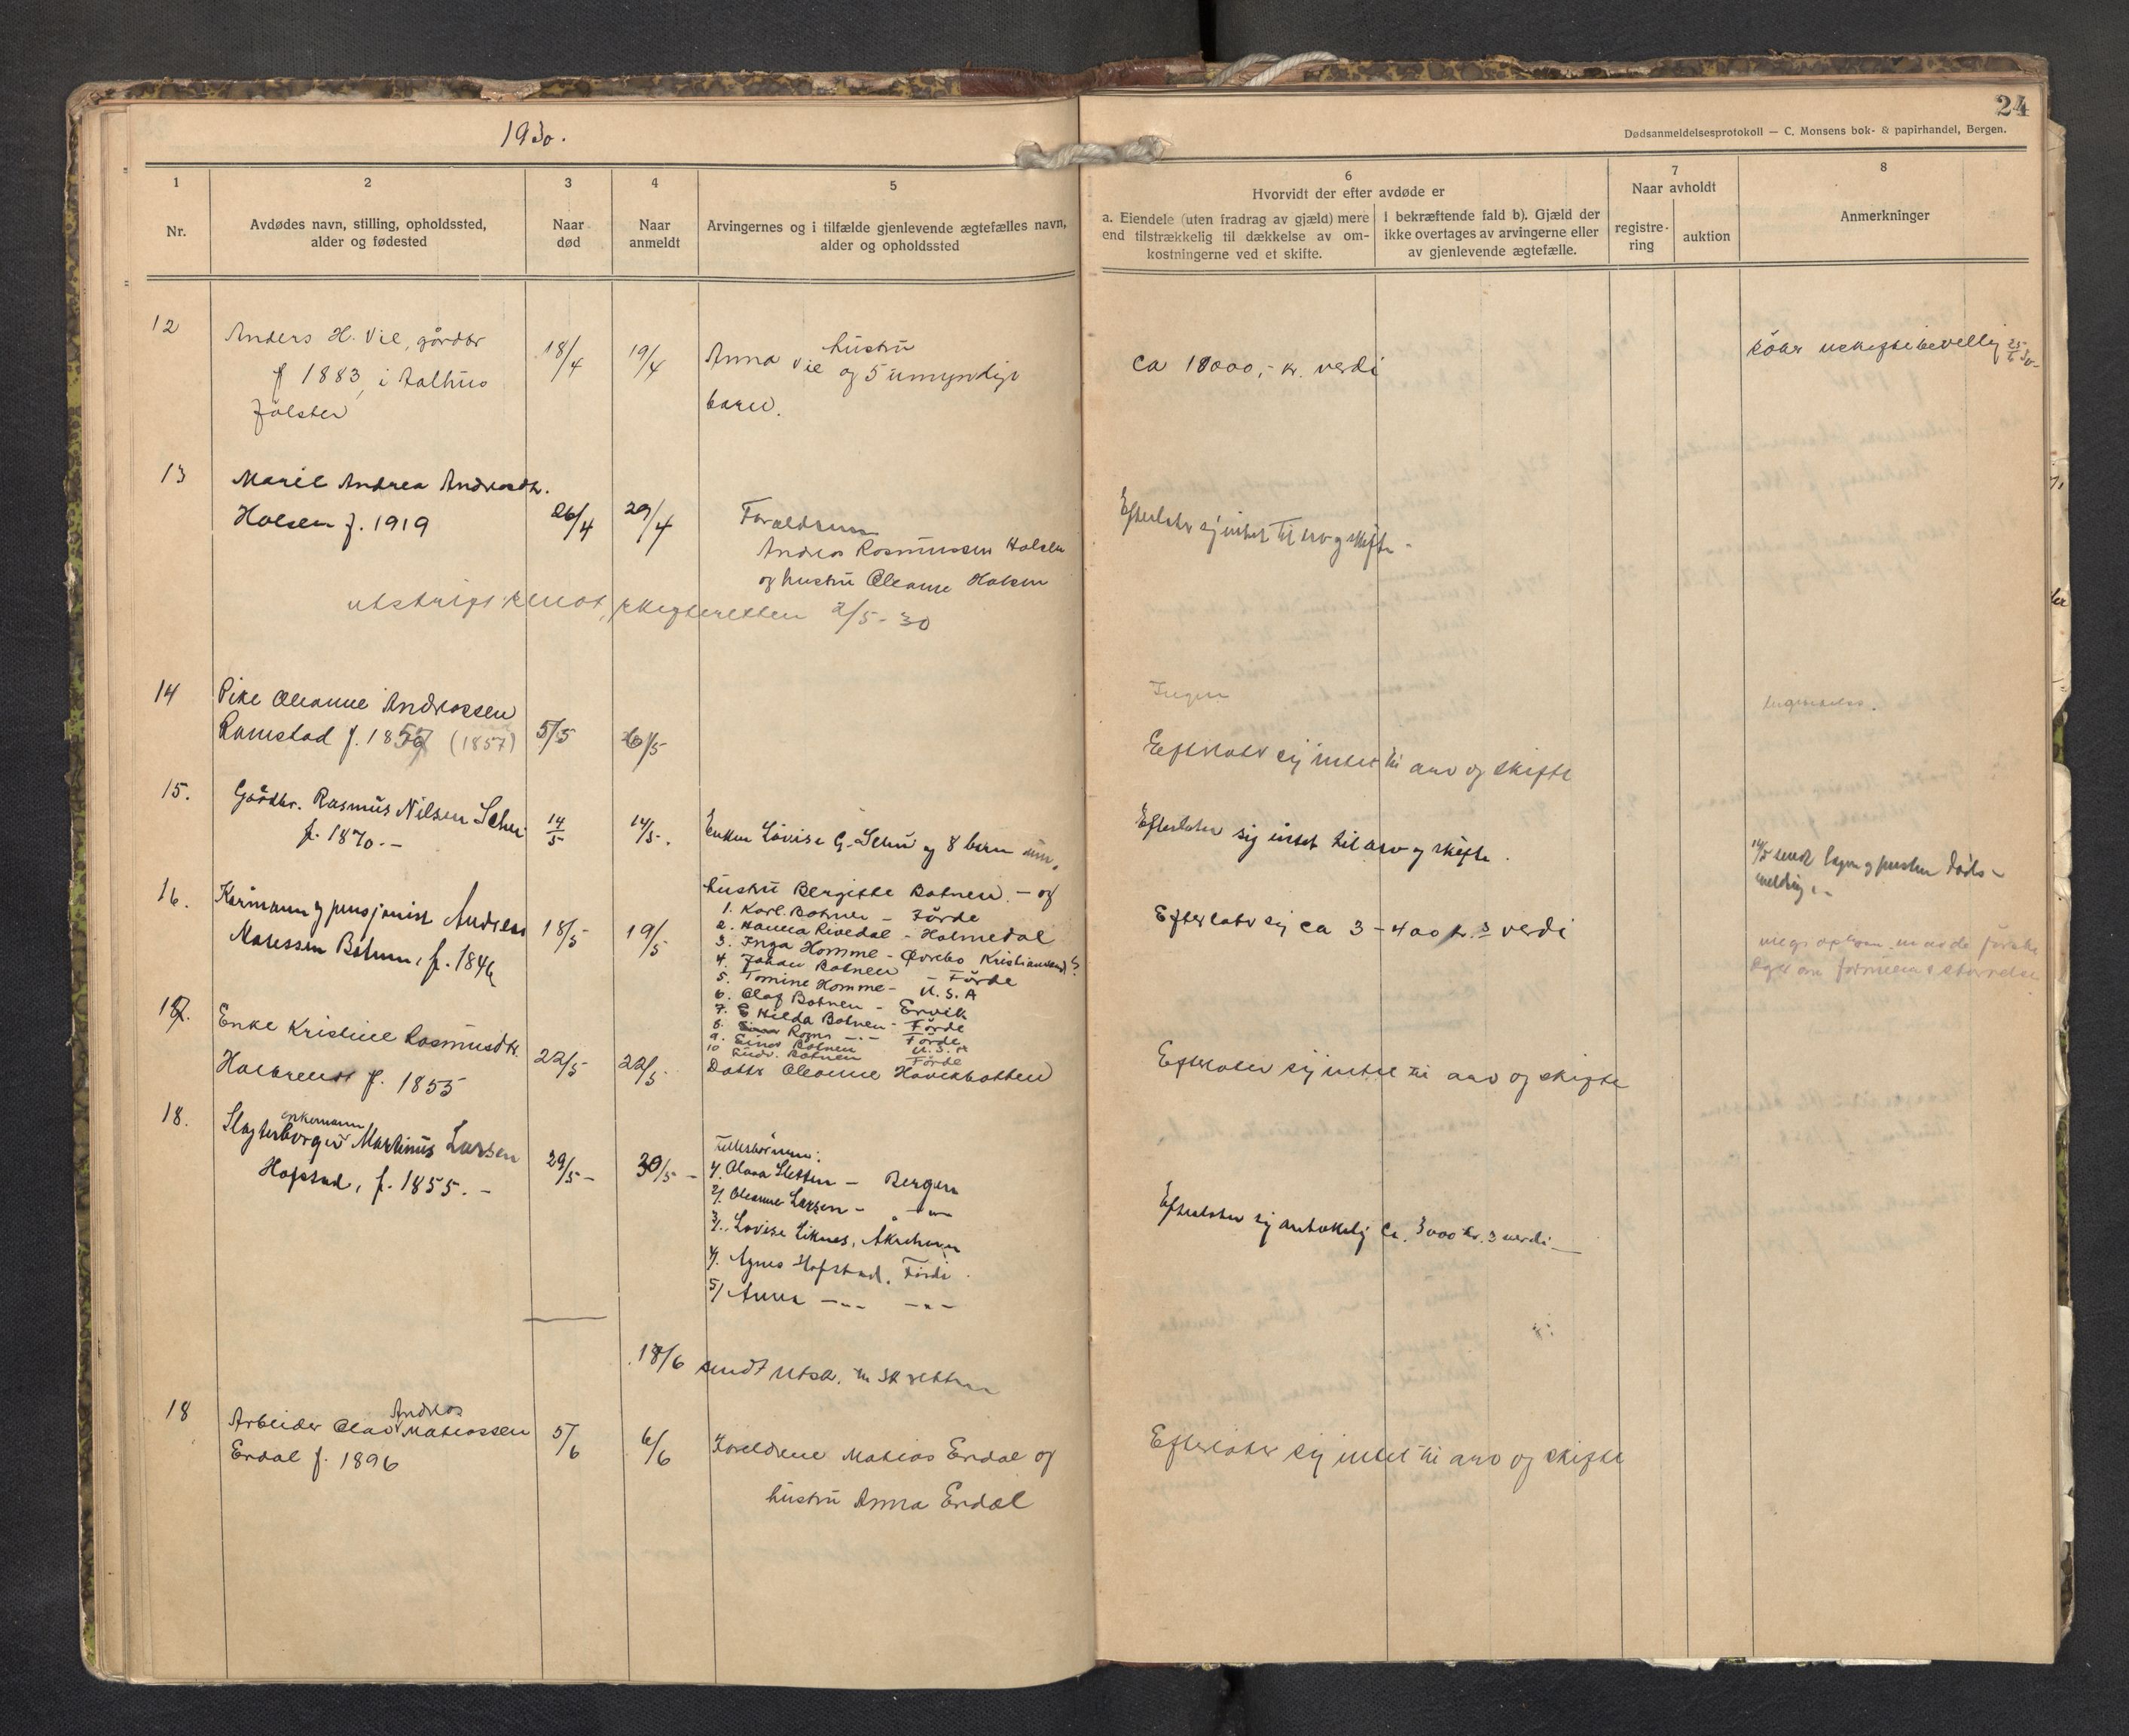 1930.
24
Dødsanmeldelsesprotokoll — C. Monsens bok- & papirhandel, Bergen.
1
Nr.
2
Avdødes navn, stilling, opholdssted,
alder og fødested
3
Naar
død
4
Naar
anmeldt
5
Arvingernes og i tilfælde gjenlevende ægtefælles navn,
alder og opholdssted
6
Hvorvidt der efter avdøde er
a. Eiendele (uten fradrag av gjæld) mere
end tilstrækkelig til dækkelse av om-
kostningerne ved et skifte.
i bekræftende fald b). Gjæld der
ikke overtages av arvingerne eller
av gjenlevende ægtefælle.
7
Naar avholdt
registre-
ring
auktion
8
Anmerkninger
12
Anders H. Vie, gårdbr
f 1883, i Aalhus
Jølster
18/4
19/4
hustru
Anna Vie og 5 umyndige
barn.
Ca 18000,- kr. verdi
søker uskiftebevilling
13
Marie Andrea Andreasdtr.
Holsen f. 1919
26/4
29/4
Foreldrene
Andreas Rasmussen Holsen
og hustru Oleane Holsen
Efterlater sig intet til arv og skifte -
utskrift sendt skifteretten 2/5-30
14
Pike Oleanne Andreassen
Ramstad f. 1857 (1857)
5/5
6/5
Ingen
Efterlater sig intet til arv og skifte
15.
Gårdbr. Rasmus Nilsen
f. 1870.-
14/5
14/5.
Enken Lovise G. og 8 barn
Efterlater sig intet til arv og skifte.
14/5 sendt og presten døds-
melding.-
16.
Kårmann og pensjonist Andreas
Botnen, f. 1846
18/5
19/5
hustru Bergitte Botnen. - og
1. Karl Botnen - Førde
2. Hanna Rivedal - Holmedal
3. Inga Homme - Øvrebø Kristiansand S
4. Johan Botnen - Førde
5. Tomine Homme - U.S.A
6. Olaf Botnen - Ervik
7. Hilda Botnen - Førde
8. Ragna -"- Førde
9. Einar Botnen U.S.A
10 Andr. Botnen Førde
Efterlater sig ca 3-400 kr.s verdi
17.
Enke Kristine Rasmusdtr.
f. 1855
22/5
22/5
Datter Oleanne
Efterlater sig intet til arv og skifte
18.
enkemann
Martinus Larsen
Hafstad, f. 1855. -
29/5 -
30/5 -
Fellesbarn:
1/. Olava Sletten - Bergen
2/. Oleanne Larsen - -"-
3/. Lovise Liknes, Åkrehavn
4/. Agnes Hafstad, Førde
5/ Anna -"- -"-
Efterlater sig antakelig ca. 3000 kr.s verdi -
18/6 sendt utskr. til sk.retten
18
Andreas
Arbeider Olav Mathiassen
Erdal f. 1896
5/6
6/6
Foreldrene Mathias Erdal og
hustru Anna Erdal
Efterlater sig intet til arv og skifte